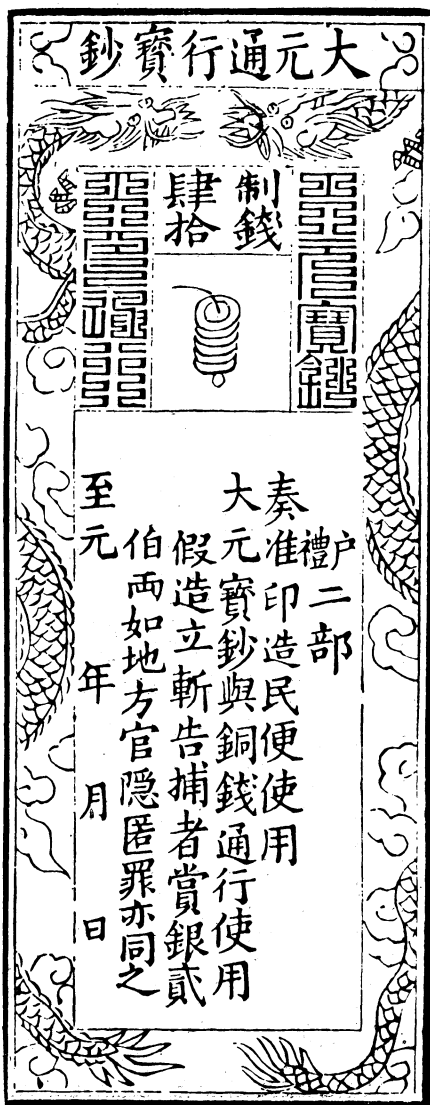 大元通行寶鈔
制錢
肆拾
至元寶鈔
戶禮二部
奏准印造民便使用
大元寶鈔與銅錢通行使用
假造立斬告捕者賞銀貳
伯両如地方官隠匿罪亦同之
至元 年 月 日